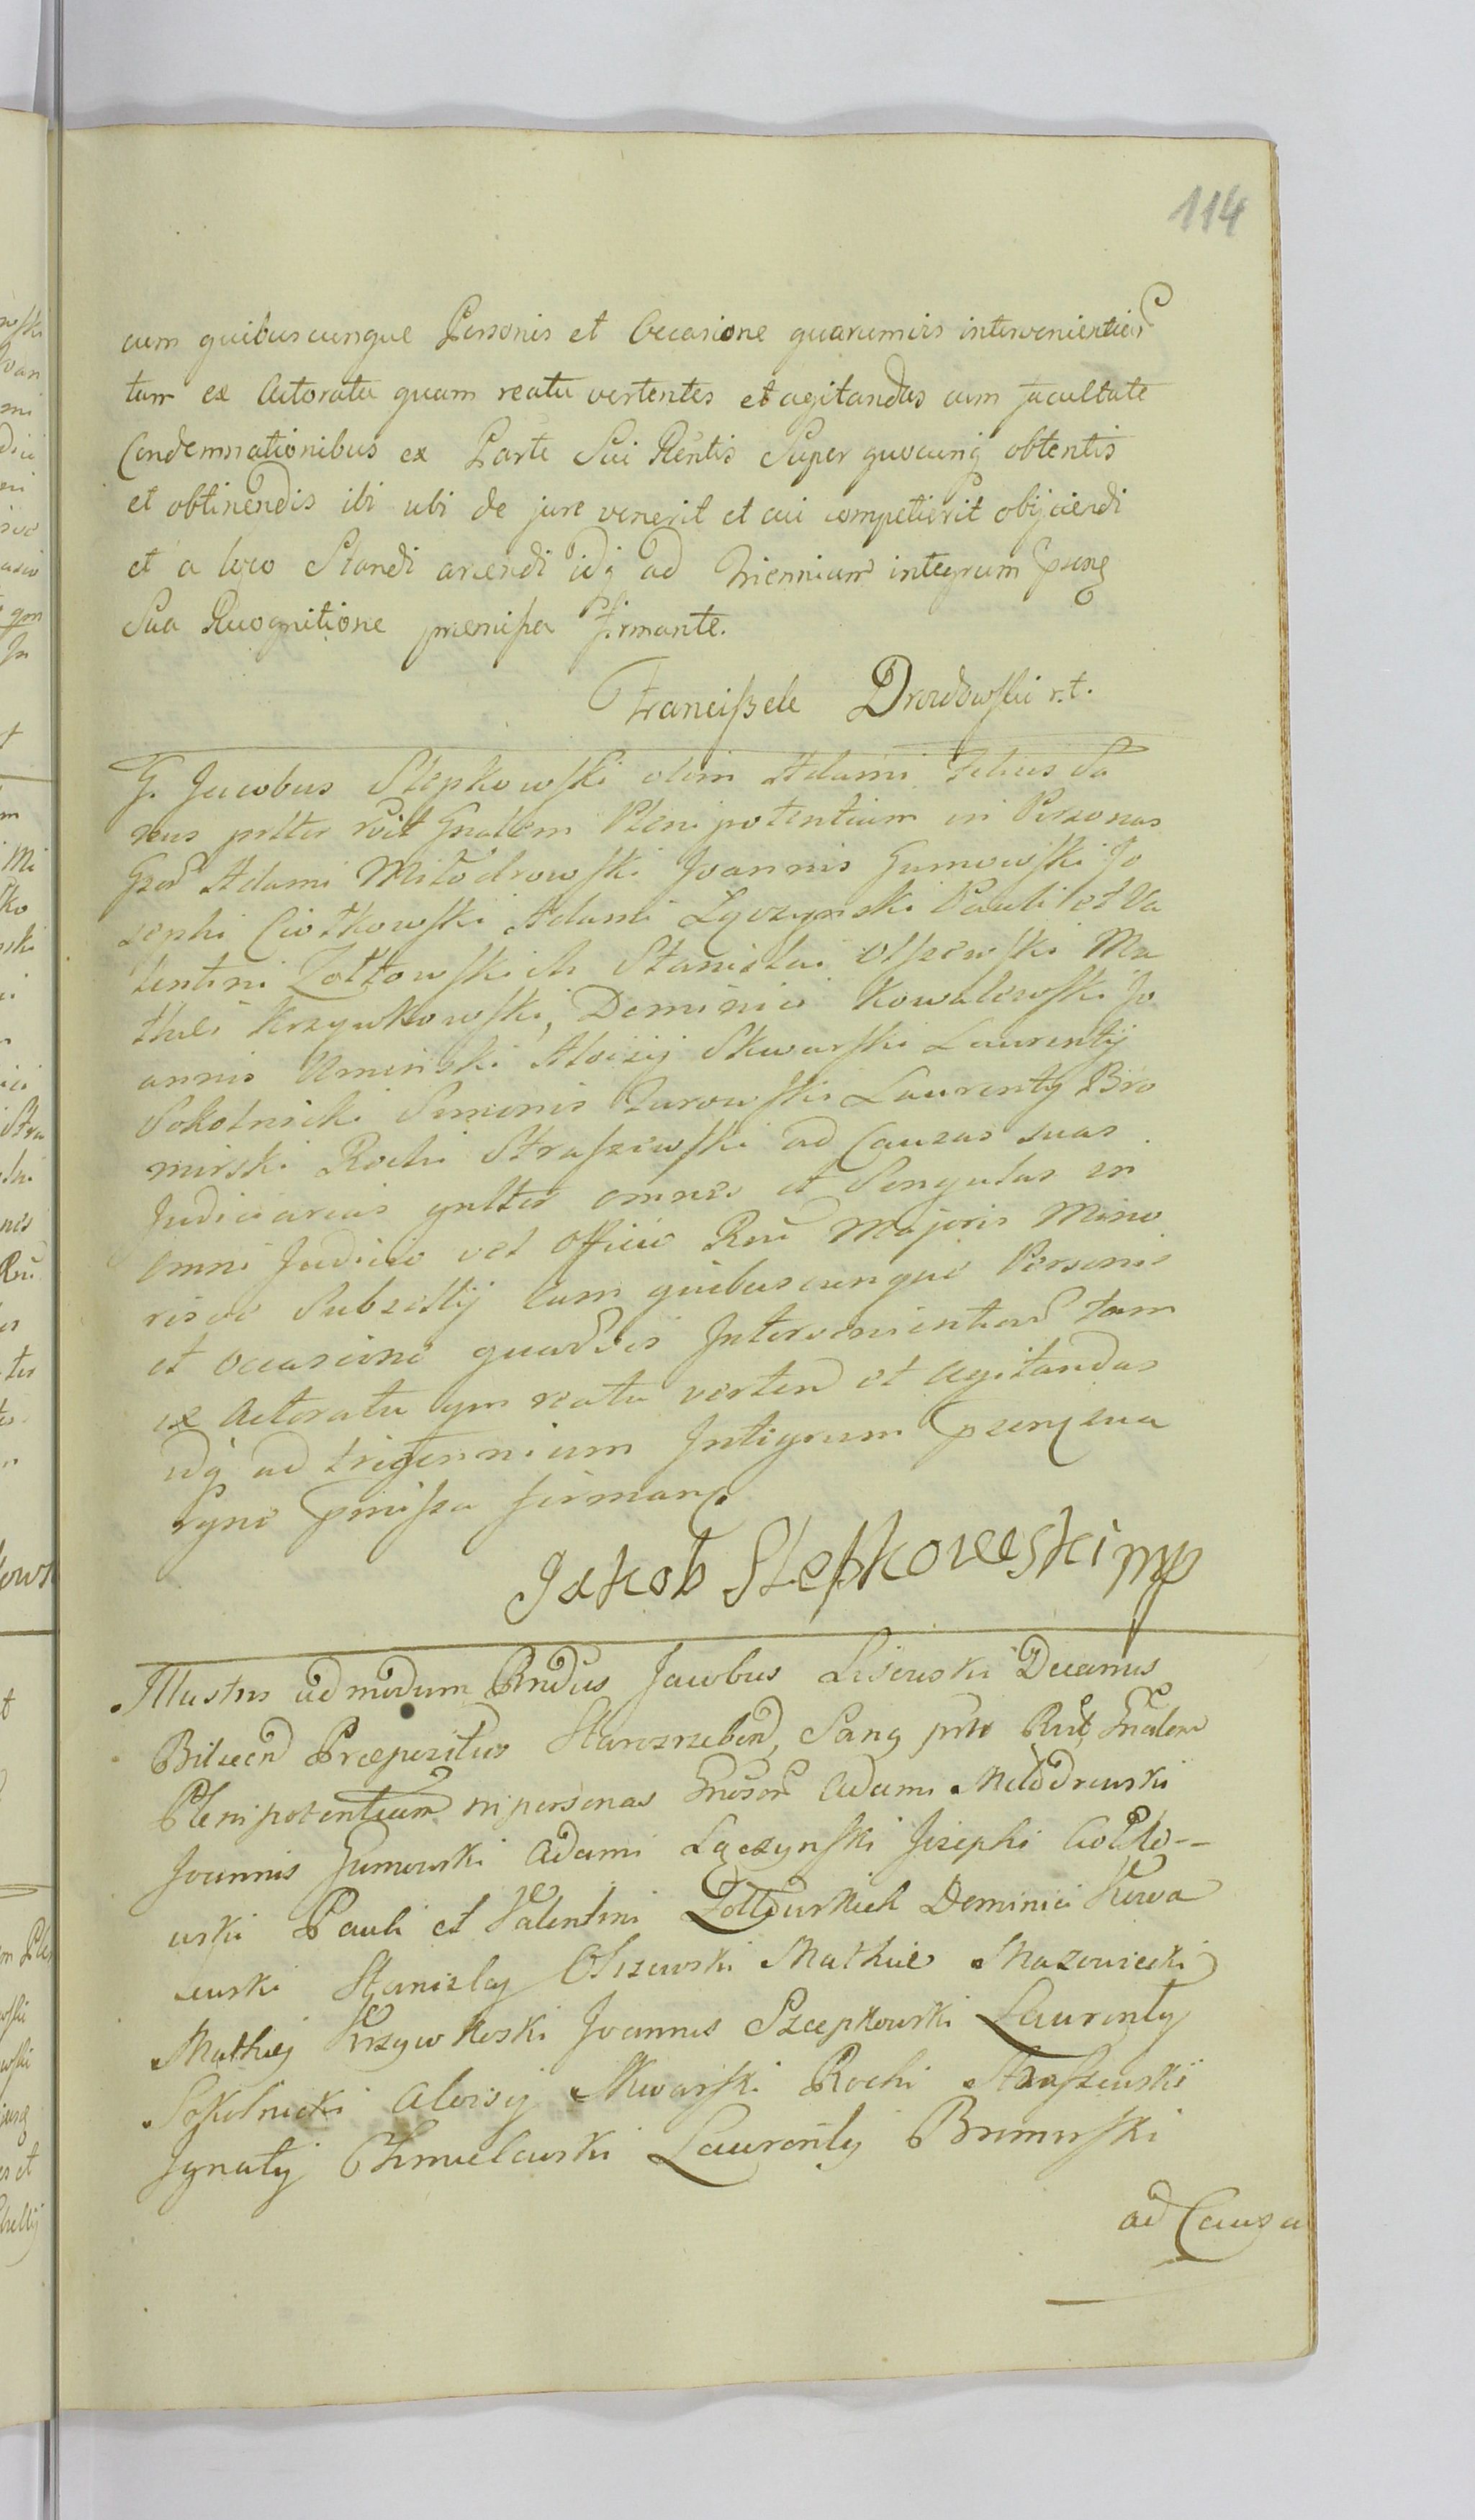 114
cum quibuscunque Personis et Occasione quarumvis intervenientiũ
tam ex Actoratu quam reatu vertentes et agitandas cum facultate
Condemnationibus ex Parte Sui Rentis Super quocunq obtentis
et obtinendis ibi ubi de jure venerit et cui competierit obijciendi
et a loco Standi arcendi idq ad Triennium integrum prnq
Sua Recognitione præmissa firmante.
Franciszek Drozdowski r.t.
G. Jacobus Stepkowski olim Adami Filius Sa
nus prltter rcit Gnalem Plenipotentiam in Personas
Gsor Adami Miłodrowski Joannis Gumowski Jo
sephi Ciołkowski Adami Łączynski Pauli et Va
lentini Zołtowskich Stanislai Olszewski Ma
thei Krzywkowski, Dominici Kowalewski Jo
annis Uminski Aloisij Skwarski Laurentij
Sokolnicki Simonis Zurowski Laurenty Bro
mirski Rochi Straszewski ad Causas suas
Judiciarias gnltter omnes et Singulas in
omni Judicio vel Officio Rni Majoris Mino
risve Subsellij Cum quibuscunque Personis
et occasione quarvis Intervenientiũ tam
ex Actoratu qm reatu verten et agitandas
idq ad triennium Integrum przenq sua
rgne pmissa firman.
Jakob Stepkowski mp
Illustris admodum Rndus Jacobus Lisowski Decanus
Bilscen Præpozitus Starozreben, Sanq prtr Rcit Gnalem
Plenipotentiam in personas Gnosor Adami Miłodrowski
Joannis Gumowski Adami Łączynski Josephi Ciołko--
wski Pauli et Valentini Zołtowskich Dominici Kowa
lewski Stanislaj Olszewski Mathiæ Mazowiecki
Mathej Krzywkoski Joannis Szczepkowski Laurenty
Sokolnicki Aloisij Skwarski Rochi Straszewski
Ignatij Chmielewski Laurenty Bromirski
ad Causa